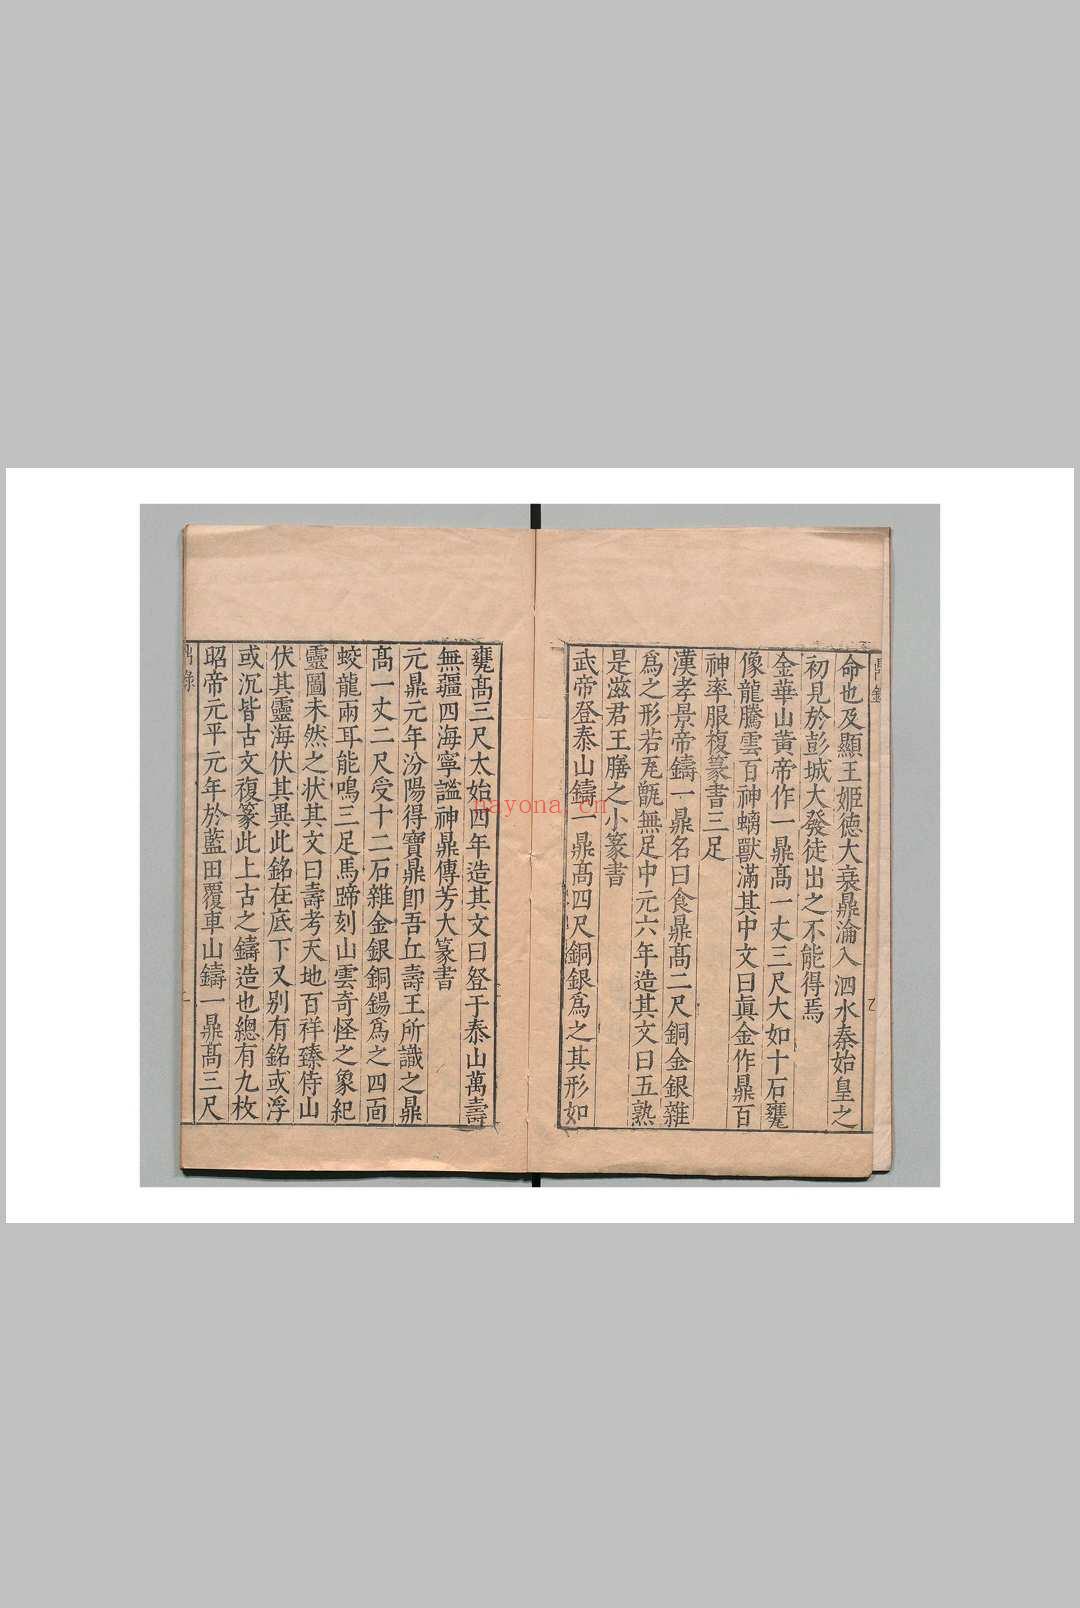 鼎錄
命也及顯王姬德大衰鼎淪入泗水秦始皇之
初見於彭城大發徒出之不能得焉
金華山黃帝作一鼎髙一丈三尺大如十石甕
像龍騰雲百神螭獸滿其中文曰眞金作鼎百
神率服複篆書三足
漢孝景帝鑄一鼎名曰食鼎髙二尺銅金銀雜
爲之形若瓦甑無足中元六年造其文曰五熟
是滋君王膳之小篆書
武帝登泰山鑄一鼎髙四尺銅銀爲之其形如
甕髙三尺太始四年造其文曰登于泰山萬壽
無疆四海寧謐神鼎傳芳大篆書
元鼎元年汾陽得寶鼎卽吾丘壽王所識之鼎
髙一丈二尺受十二石雜金銀銅鍚爲之四面
蛟龍兩耳能鳴三足馬蹄刻山雲奇怪之象紀
靈圖未然之状其文曰壽考天地百祥臻侍山
伏其靈海伏其異此銘在底下又别有銘或浮
或沉皆古文複篆此上古之鑄造也總有九枚
昭帝元平元年於藍田覆車山鑄一鼎髙三尺
鼎錄
nayona.cn